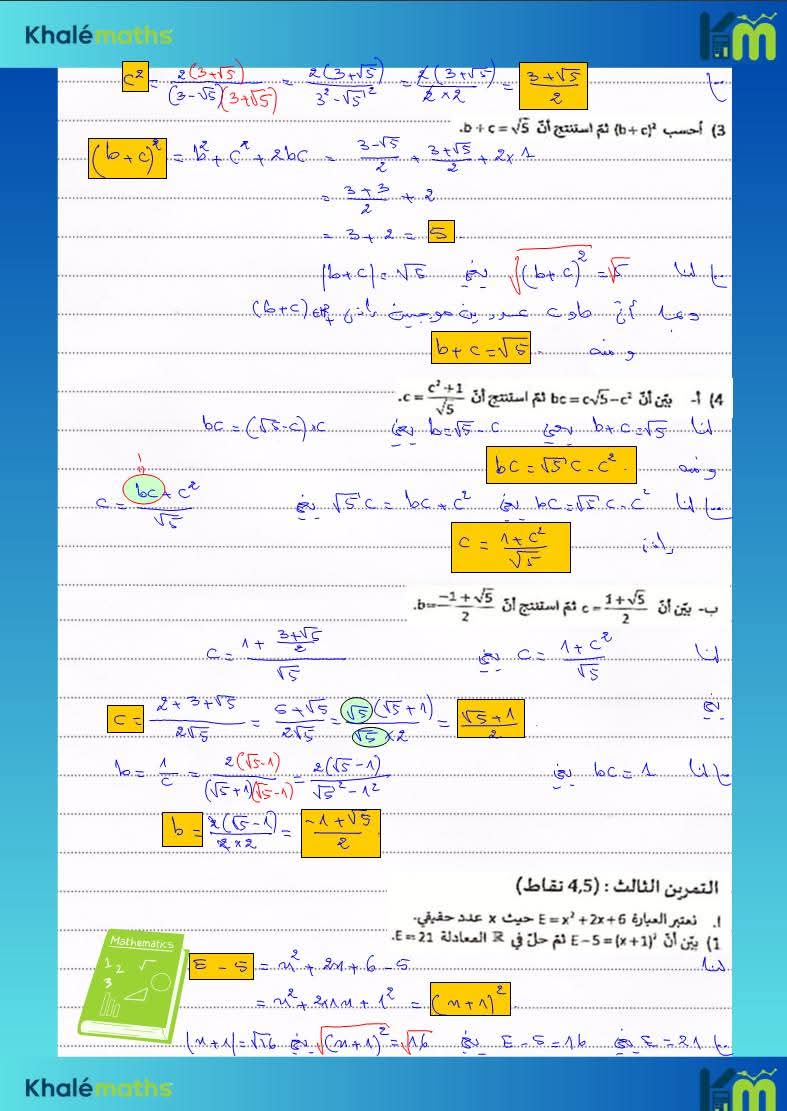 Khalémaths
KM
c² = 2(3+√5)/(3-√5)(3+√5) = 2(3+√5)/3²-√5² = 2(3+√5)/2×2 = 3+√5/2
3) أحسب (b+c)² ثمّ استنتج أنّ b+c=√5.
(b+c)² = b²+c²+2bc = 3-√5/2 + 3+√5/2 + 2×1
= 3+3/2 + 2
= 3+2 = 5
لنا √(b+c)² = √5 يعني |b+c| = √5
وبما أنّ b و c عددين موجبين فإن (b+c)∈ℝ₊
ومنه b+c=√5
4) أ- بيّن أنّ bc=c√5-c² ثمّ استنتج أنّ c=c²+1/√5.
لنا b+c=√5 يعني b=√5-c يعني bc=(√5-c)×c
ومنه bc=√5c-c².
1
لنا bc=√5c-c² يعني √5c=bc+c² يعني c=bc+c²/√5
إذن c=1+c²/√5
ب- بيّن أنّ c=1+√5/2 ثمّ استنتج أنّ b=-1+√5/2.
لنا c=1+c²/√5 يعني c=1+3+√5/2/√5
يعني c=2+3+√5/2√5 = 5+√5/2√5 = √5(√5+1)/√5×2 = √5+1/2
لنا bc=1 يعني b=1/c = 2(√5-1)/(√5+1)(√5-1) = 2(√5-1)/√5²-1²
b = 2(√5-1)/2×2 = -1+√5/2
التمرين الثالث : (4,5 نقاط)
I. نعتبر العبارة E=x²+2x+6 حيث x عدد حقيقي.
1) بيّن أنّ E-5=(x+1)² ثمّ حلّ في ℝ المعادلة E=21.
Mathematics
1 2 √
3
لنا E-5 = x²+2x+6-5
= x²+2×1×x+1² = (x+1)².
لنا E=21 يعني E-5=16 يعني √(x+1)²=√16 يعني |x+1|=√16
Khalémaths
KM